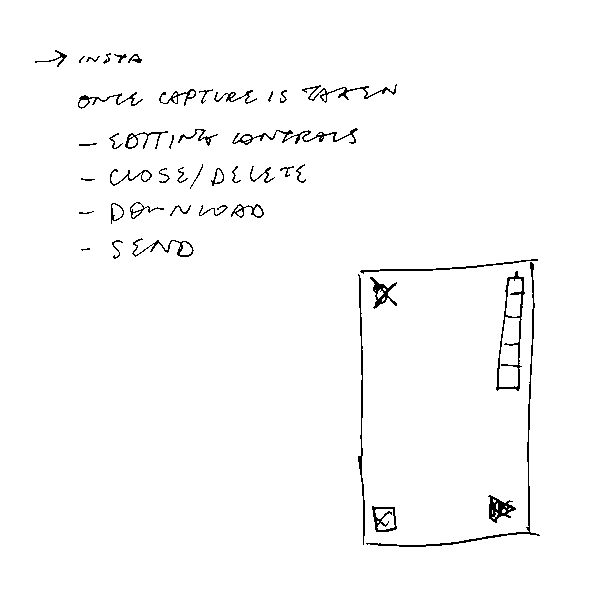 → INSTA
ONCE CAPTURE IS TAKEN
- EDITTING CONTROLS
- CLOSE/DELETE
- DOWNLOAD
- SEND